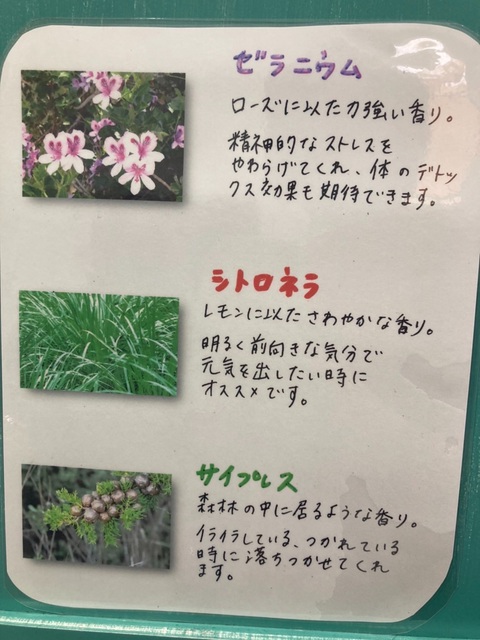 ゼラニウム
ローズに似た力強い香り。
精神的なストレスを
やわらげてくれ、体のデトッ
クス効果も期待できます。
シトロネラ
レモンに似たさわやかな香り。
明るく前向きな気分で
元気を出したい時に
オススメです。
サイプレス
森林の中に居るような香り。
イライラしている、つかれている
時に落ちつかせてくれ
ます。